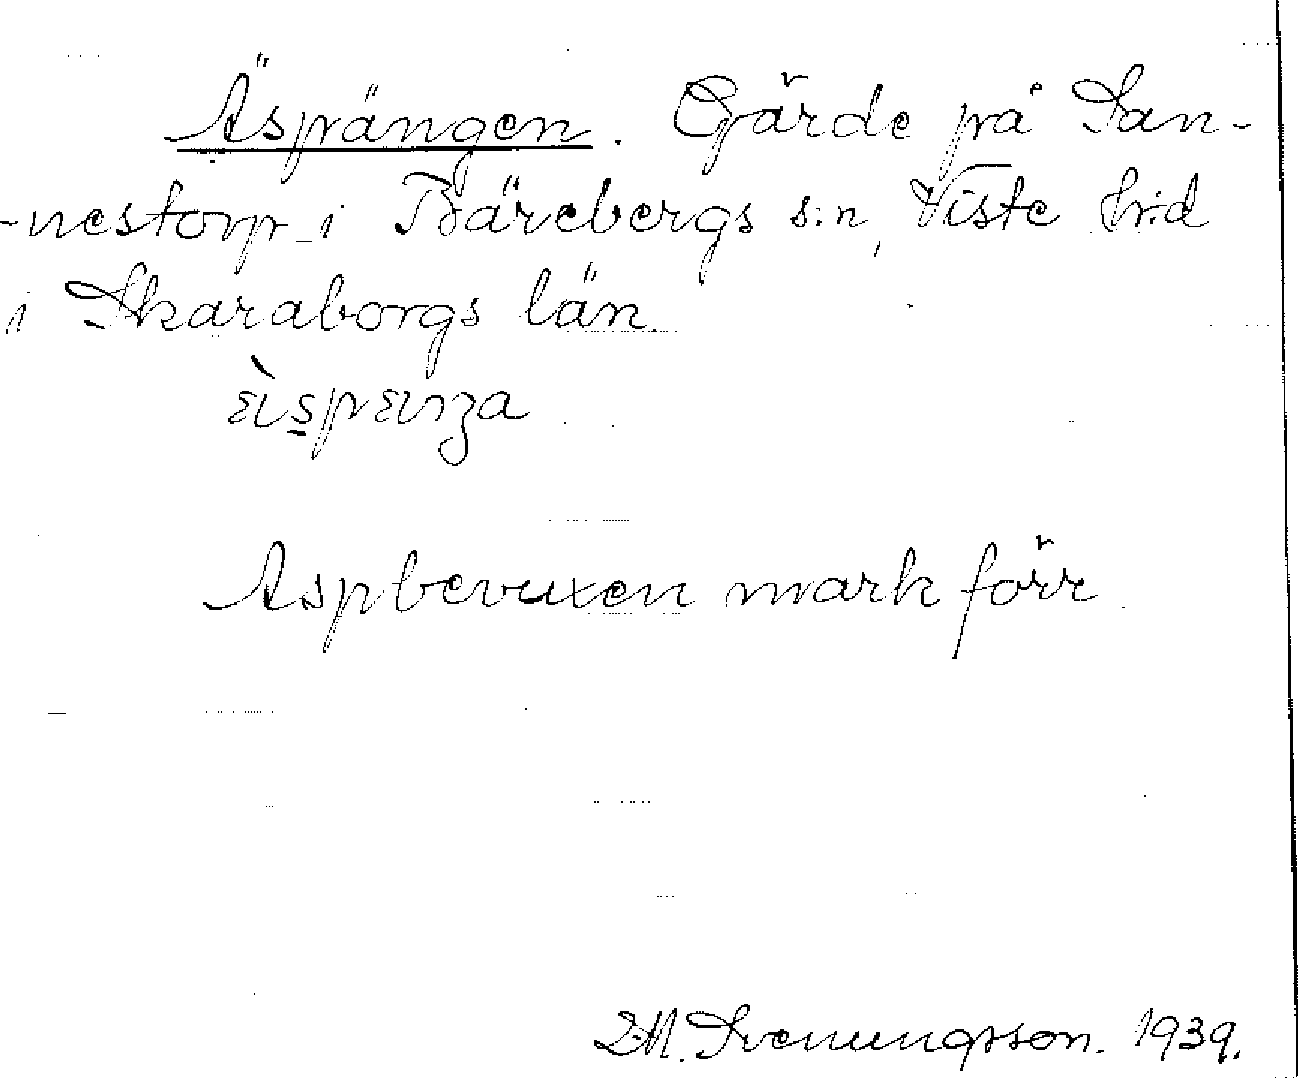 Äspängen. Gärde på San-
-nestorp i Bärebergs s:n, Viste h:d
i Skaraborgs län.
Aspbevuxen mark förr
Svenungsson. 1939.